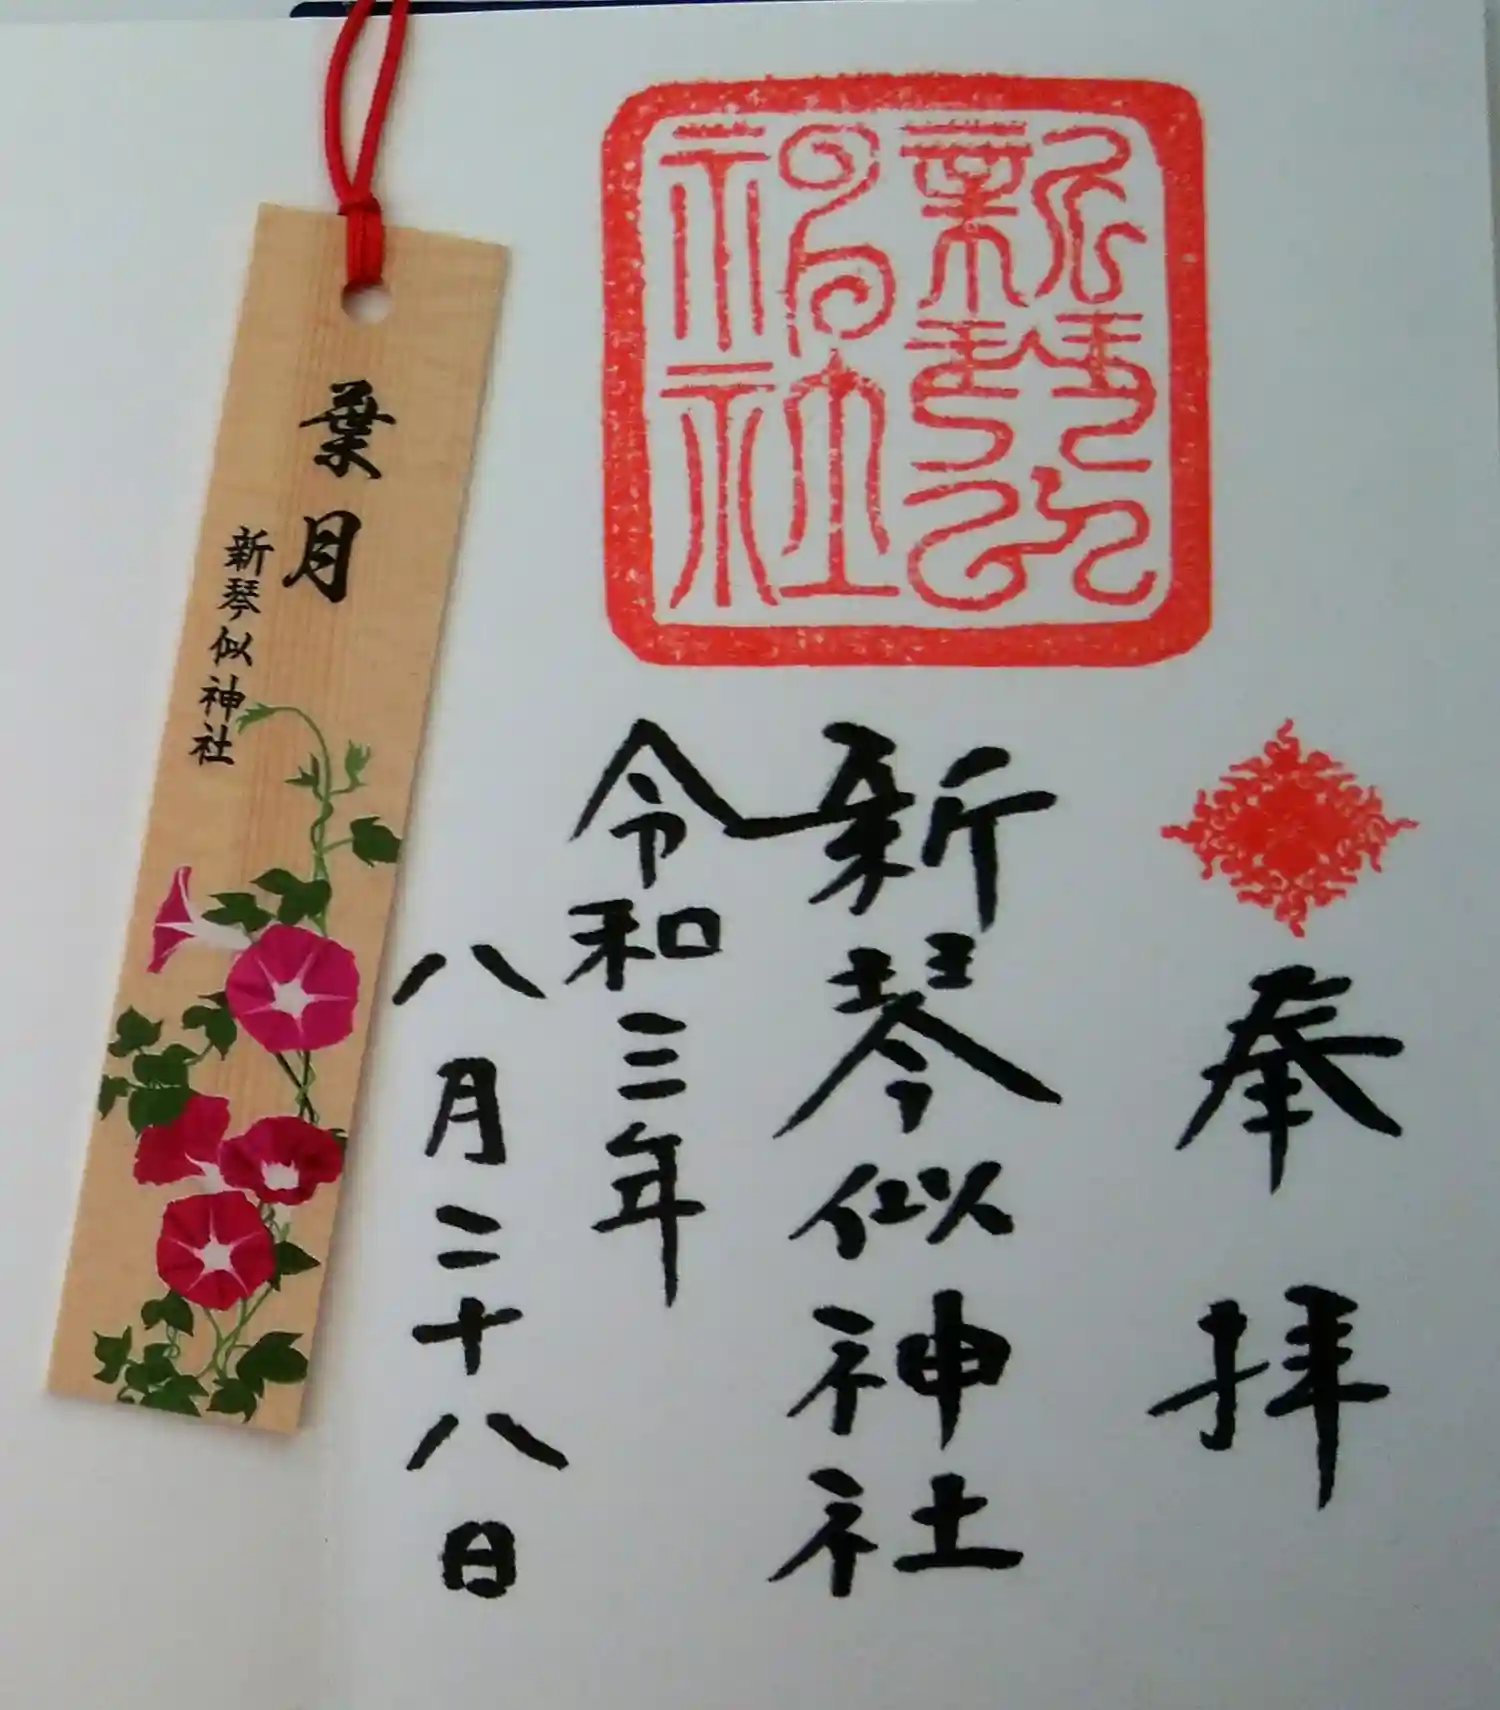 新琴似
神社
奉拝
新琴似神社
令和三年
八月二十八日
葉月
新琴似神社